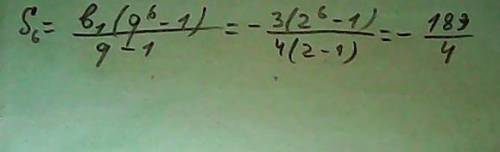 S₆= в₁(q⁶-1)/q-1 = - 3(2⁶-1)/4(2-1) = - 189/4